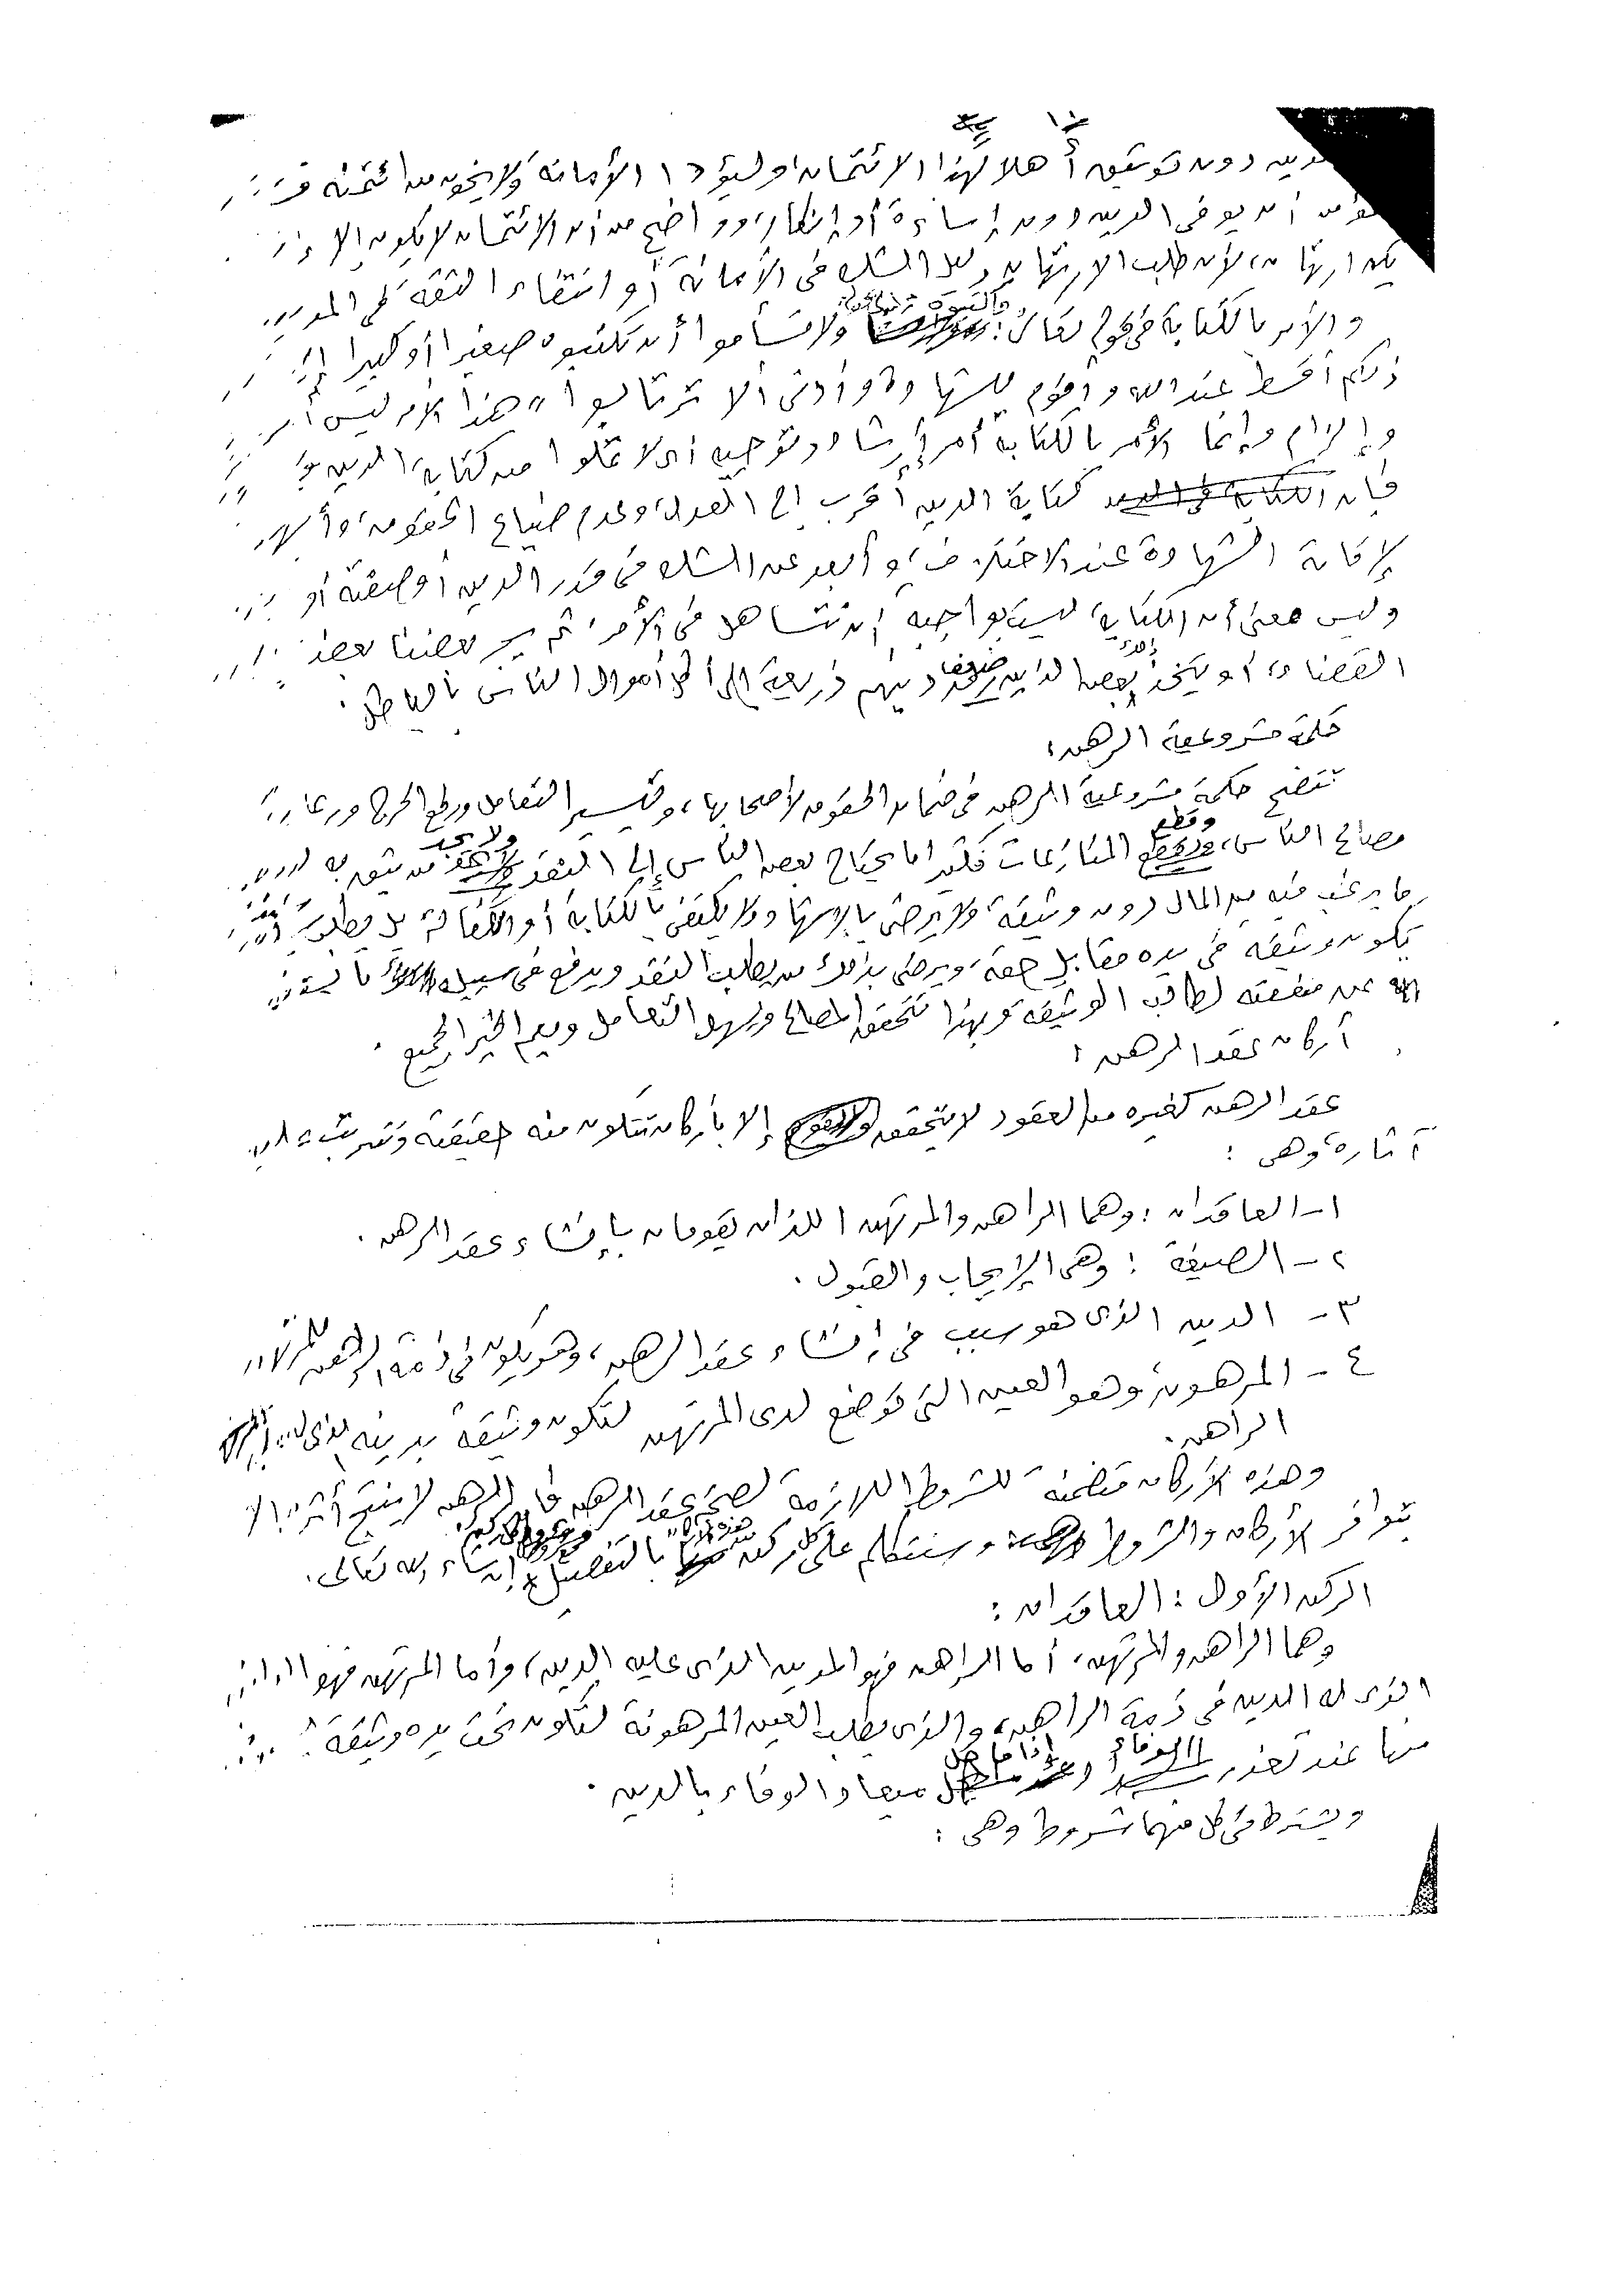 الدين دون توثيق أهلا لهذا الائتمان وليؤد الأمانة ولا يخون من ائتمنه
أن يوفى الدين دون إساءة أو إنكار، وواضح من أن الائتمان لا يكون إلا إذا
يكن ارتهان، لأن طلب الارتهان دليل الشك فى الأمانة أو انتفاء الثقة فى المدين
والأمر بالكتابة فى قوله تعالى: ولا تسأموا أن تكتبوه صغيرا أو كبيرا إلى
ذلكم أقسط عند الله وأقوم للشهادة وأدنى ألا ترتابوا" هذا الأمر ليس أمر
وإلزام وإنما الأمر بالكتابة أمر إرشاد وتوجيه أى لا تملوا من كتابة الدين
فإن كتابة الدين أقرب إلى العدل، وعدم ضياع الحقوق، وأسهل
لإقامة الشهادة عند الاختلاف، وأبعد عن الشك فى قدر الدين أو صفته أو
وليس معنى أن الكتابة ليست بواجبة أن نتساهل فى الأمر، ثم يجر بعضنا بعضا
القضاء، أو يتخذ بعض الذين ضعف دينهم ذريعة إلى أكل أموال الناس بالباطل.
حكمة مشروعية الرهن:
تتضح حكمة مشروعية الرهن فى ضمان الحقوق لأصحابها، وتيسير التعامل ورفع الحرج ورعاية
مصالح الناس، وقطع المنازعات فكثيرا ما يحتاج بعض الناس إلى النقد ولا يجد من يثق به
ما يرغب فيه من المال دون وثيقة، ولا يرضى بالإشهاد ولا يكتفى بالكتابة أو الكفالة بل يطلب
تكون وثيقة فى يده مقابل حقه، ويرضى بذلك من يطلب النقد ويدفع فى سبيله ما
عن منفعته لطالب الوثيقة وبهذا تتحقق المصالح ويسهل التعامل ويعم الخير الجميع.
أركان عقد الرهن:
عقد الرهن كغيره من العقود لا يتحقق إلا بأركان تتكون منه حقيقته وتترتب عليه
آثاره، وهى:
١- العاقدان: وهما الراهن والمرتهن اللذان يقومان بإنشاء عقد الرهن.
٢- الصيغة: وهى الإيجاب والقبول.
٣- الدين الذى هو سبب فى إنشاء عقد الرهن، وهو يكون فى ذمة الراهن للمرتهن
٤- المرهون، وهو العين التى توضع لدى المرتهن لتكون وثيقة بدينه
الراهن.
وهذه الأركان متضمنة للشروط اللازمة لصحة عقد الرهن فإن الرهن لا ينتج أثره إلا
بتوافر الأركان والشروط وسنتكلم على كل ركن من هذه الأركان بالتفصيل إن شاء الله تعالى.
الركن الأول: العاقدان:
وهما الراهن والمرتهن، أما الراهن فهو المدين الذى عليه الدين، وأما المرتهن فهو الدائن
الذى له الدين فى ذمة الراهن، والذى يطلب العين المرهونة لتكون تحت يده وثيقة
منها عند تعذر الوفاء إذا ما حل ميعاد الوفاء بالدين.
ويشترط فى كل منهما شروط وهى: